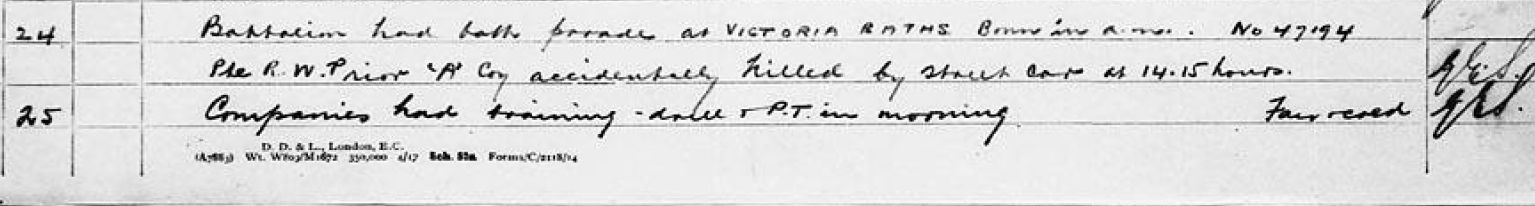 24 Battalion had bath parade at VICTORIA BATHS Bonn in a.m. No 47194
Pte R. W. Prior "A" Coy accidentally killed by street car at 14.15 hours.
25 Companies had training - drill & P.T. in morning Fair & cold
D. D. & L., London, E.C.
(A7883) Wt. W809/M1672 350,000 4/17 Sch. 52a Forms/C/2118/14